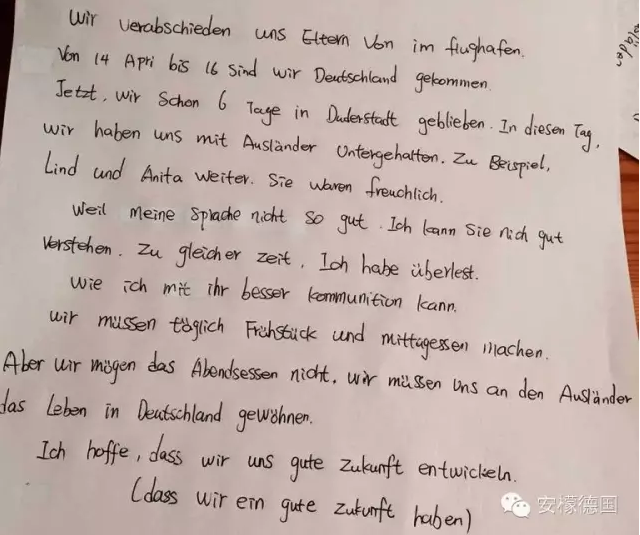 Wir verabschieden uns Eltern Von im flughafen.
Von 14 Apri bis 16 sind wir Deutschland gekommen.
Jetzt, wir Schon 6 Tage in Duderstadt geblieben. In diesen Tag,
wir haben uns mit Ausländer Untergehalten. Zu Beispiel,
Lind und Anita weiter. Sie waren freuchlich.
Weil meine Sprache nicht so gut. Ich kann Sie nich gut
Verstehen. Zu gleicher zeit, Ich habe überlest.
Wie ich mit ihr besser kommunition kann.
Wir müssen täglich Frühstück und mittagessen machen.
Aber wir mögen das Abendsessen nicht. wir müssen Uns an den Ausländer
das Leben in Deutschland gewöhnen.
Ich hoffe, dass wir uns gute Zukunft entwickeln.
(dass wir ein gute Zukunft haben)
安檬德国